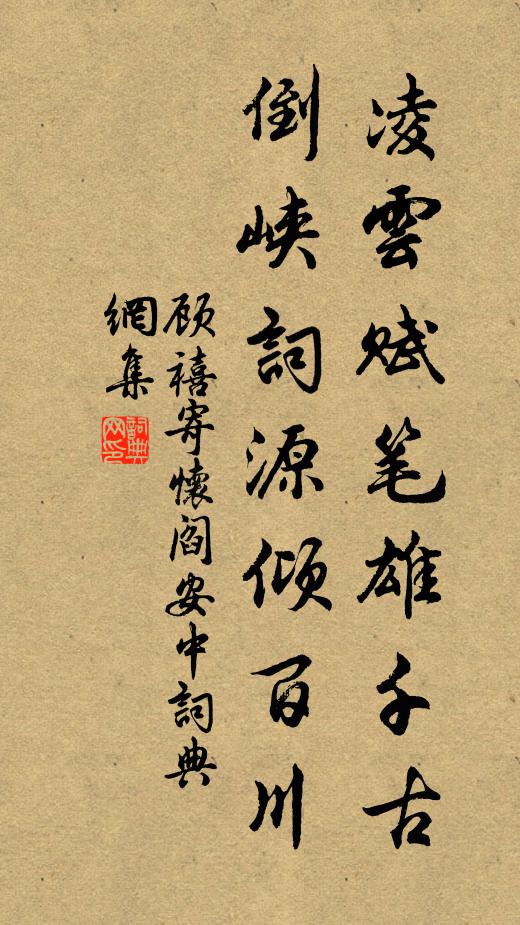 凌雲賦笔雄千古
倒峡詞源傾百川
顾禧寄懷閻安中詞典
網集
詞典
网印